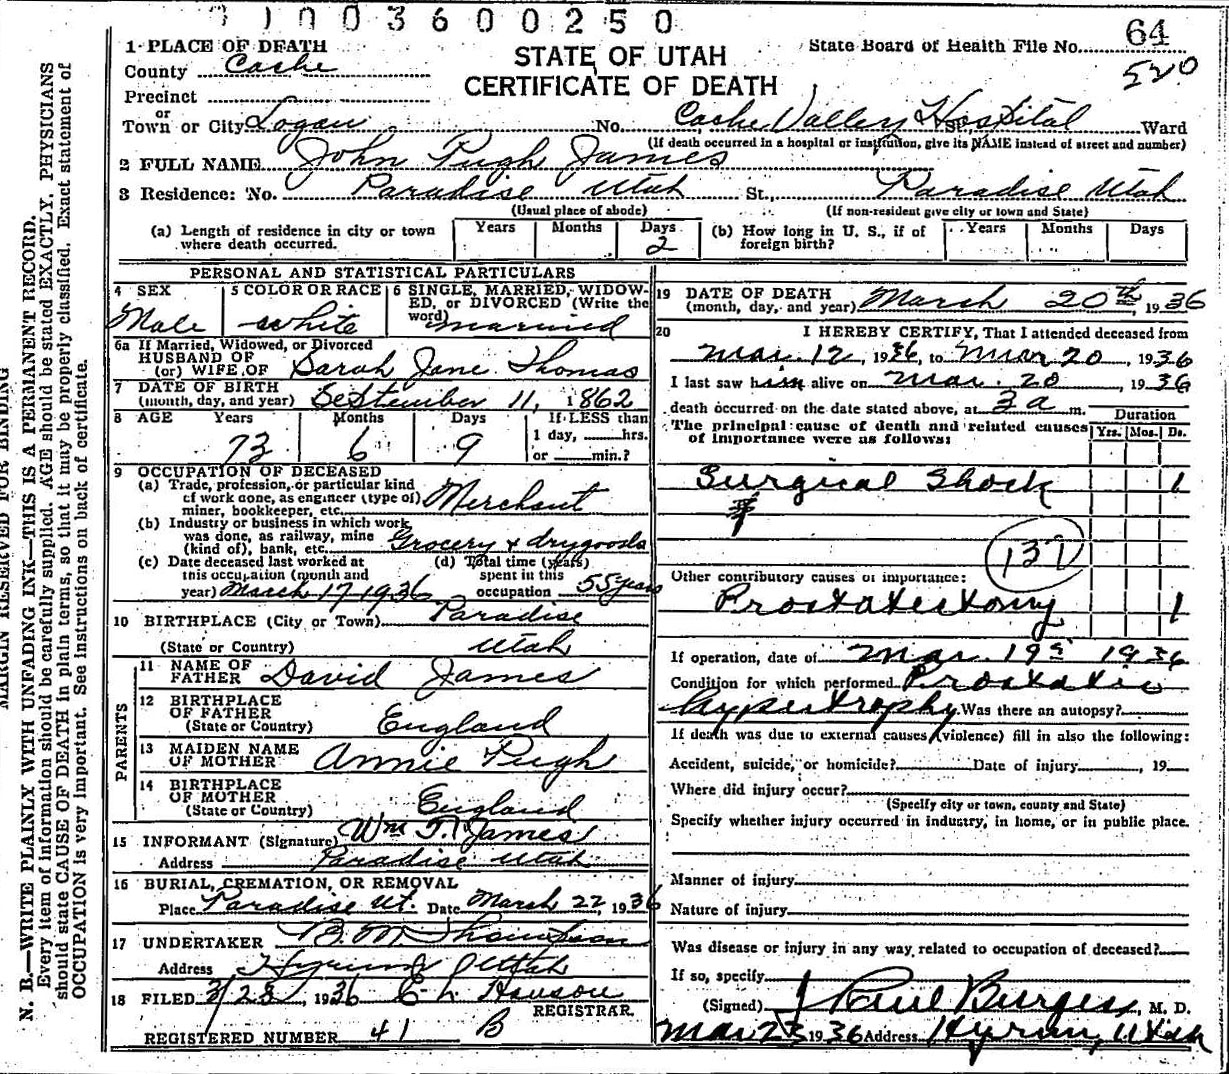 0100360025 0
64
520
1 PLACE OF DEATH
County Cache
Precinct
or
Town or City Logan No. Cache Valley Hospital St., Ward
(If death occurred in a hospital or institution, give its NAME instead of street and number)
STATE OF UTAH
CERTIFICATE OF DEATH
State Board of Health File No.
2 FULL NAME John Pugh James
3 Residence: No. Paradise Utah St., Paradise Utah
(Usual place of abode) (If non-resident give city or town and State)
(a) Length of residence in city or town where death occurred. Years Months Days 2
(b) How long in U. S., if of foreign birth? Years Months Days
PERSONAL AND STATISTICAL PARTICULARS
4 SEX Male
5 COLOR OR RACE white
6 SINGLE, MARRIED, WIDOWED, or DIVORCED (Write the word) married
6a If Married, Widowed, or Divorced
HUSBAND OF
(or) WIFE OF Sarah Jane Thomas
7 DATE OF BIRTH
(month, day, and year) September 11, 1862
8 AGE Years 73 Months 6 Days 9 If LESS than
1 day, hrs.
or min.?
9 OCCUPATION OF DECEASED
(a) Trade, profession, or particular kind
of work done, as engineer (type of)
miner, bookkeeper, etc. Merchant
(b) Industry or business in which work
was done, as railway, mine
(kind of), bank, etc. Grocery & drygoods
(c) Date deceased last worked at
this occupation (month and
year) March 17 1936
(d) Total time (years)
spent in this
occupation 55 years
10 BIRTHPLACE (City or Town) Paradise
(State or Country) Utah
PARENTS
11 NAME OF
FATHER David James
12 BIRTHPLACE
OF FATHER
(State or Country) England
13 MAIDEN NAME
OF MOTHER Annie Pugh
14 BIRTHPLACE
OF MOTHER
(State or Country) England
15 INFORMANT (Signature) Wm T. James
Address Paradise Utah
16 BURIAL, CREMATION, OR REMOVAL
Place Paradise Ut. Date March 22, 1936
17 UNDERTAKER B. M. Thompson
Address Hyrum Utah
18 FILED 3/23, 1936
REGISTRAR
REGISTERED NUMBER 41 B
19 DATE OF DEATH
(month, day, and year) March 20th, 1936
20 I HEREBY CERTIFY, That I attended deceased from
Mar. 12, 1936, to Mar 20, 1936
I last saw him alive on Mar. 20, 1936
death occurred on the date stated above, at 3 a m.
The principal cause of death and related causes
of importance were as follows:
Duration
Yrs. Mos. Ds.
Surgical Shock 1
137
Other contributory causes of importance:
Prostatectomy 1
If operation, date of Mar. 19 1936
Condition for which performed Prostatic
hypertrophy Was there an autopsy?
If death was due to external causes (violence) fill in also the following:
Accident, suicide, or homicide? Date of injury , 19
Where did injury occur?
(Specify city or town, county and State)
Specify whether injury occurred in industry, in home, or in public place.
Manner of injury
Nature of injury
Was disease or injury in any way related to occupation of deceased?
If so, specify
(Signed) J Paul Burgess, M. D.
Mar 23 1936 Address Hyrum, Utah
MARGIN RESERVED FOR BINDING
N. B.—WRITE PLAINLY WITH UNFADING INK—THIS IS A PERMANENT RECORD.
Every item of information should be carefully supplied. AGE should be stated EXACTLY. PHYSICIANS
should state CAUSE OF DEATH in plain terms, so that it may be properly classified. Exact statement of
OCCUPATION is very important. See instructions on back of certificate.